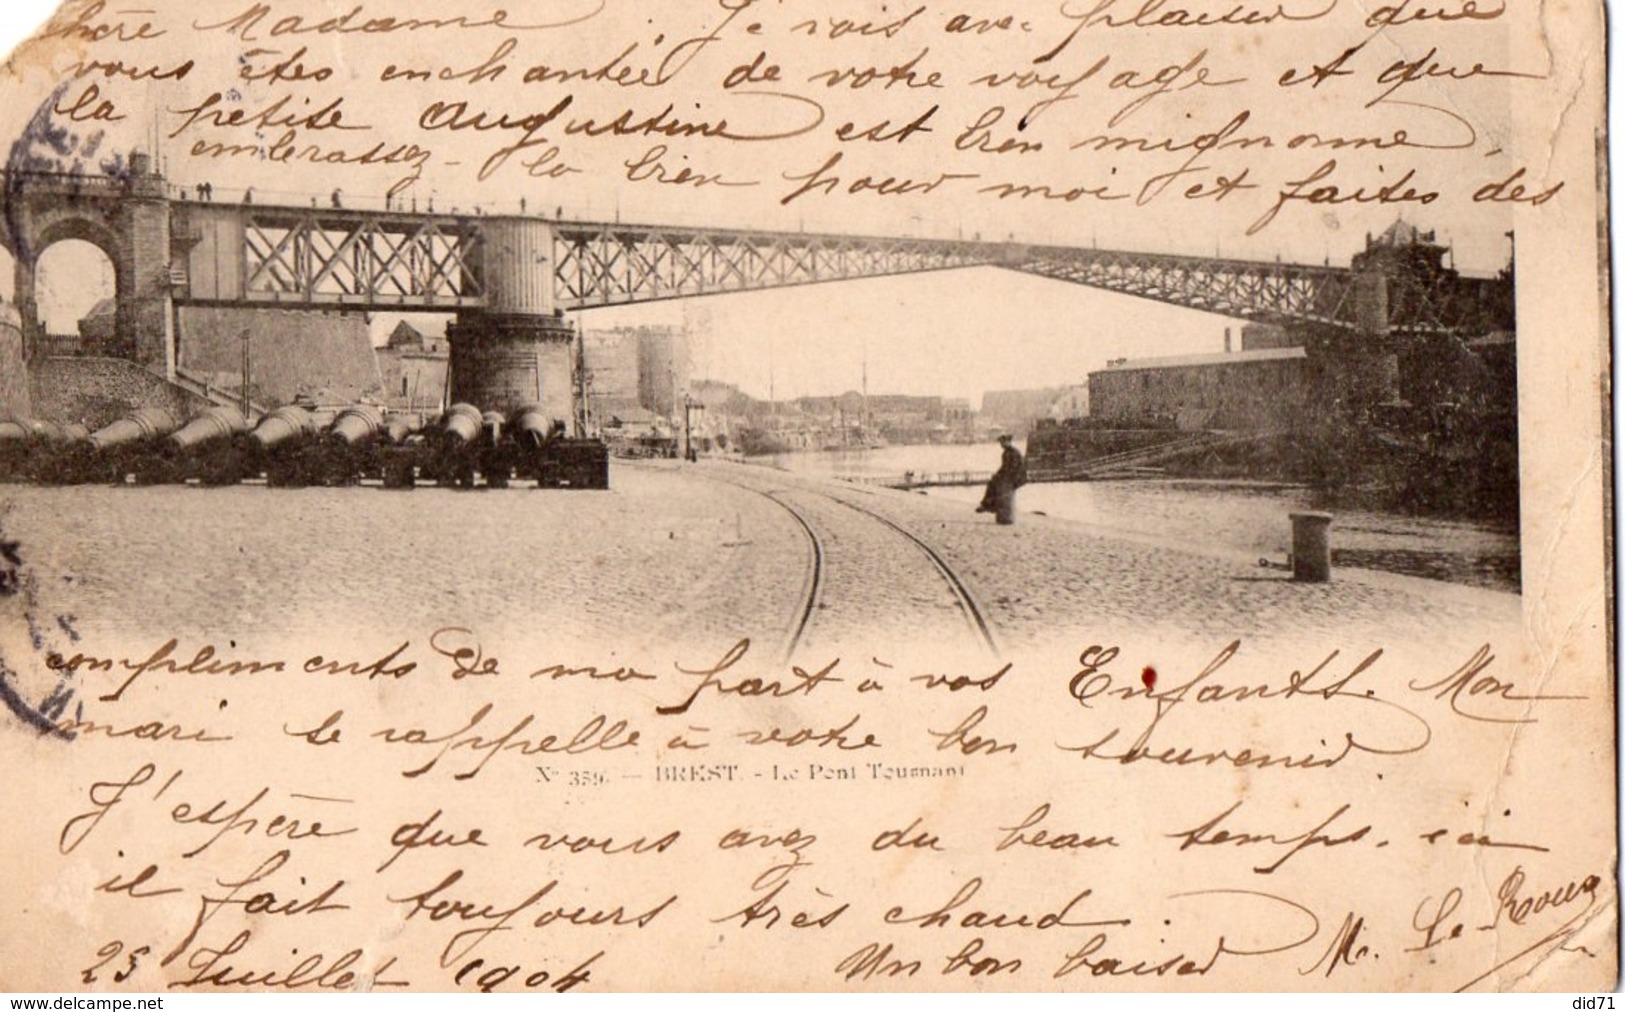 chère Madame. Je vois avec plaisir que
vous êtes enchantée de votre voyage et que
la petite Augustine est bien mignonne,
embrassez-la bien pour moi et faites des
compliments de ma part à vos Enfants. Mon
mari se rappelle à votre bon souvenir.
N° 359. — BREST. - Le Pont Tournant
J'espère que vous avez du beau temps. ici
il fait toujours très chaud.
25 Juillet 1904 Un bon baiser M. Le Roux
www.delcampe.net did71